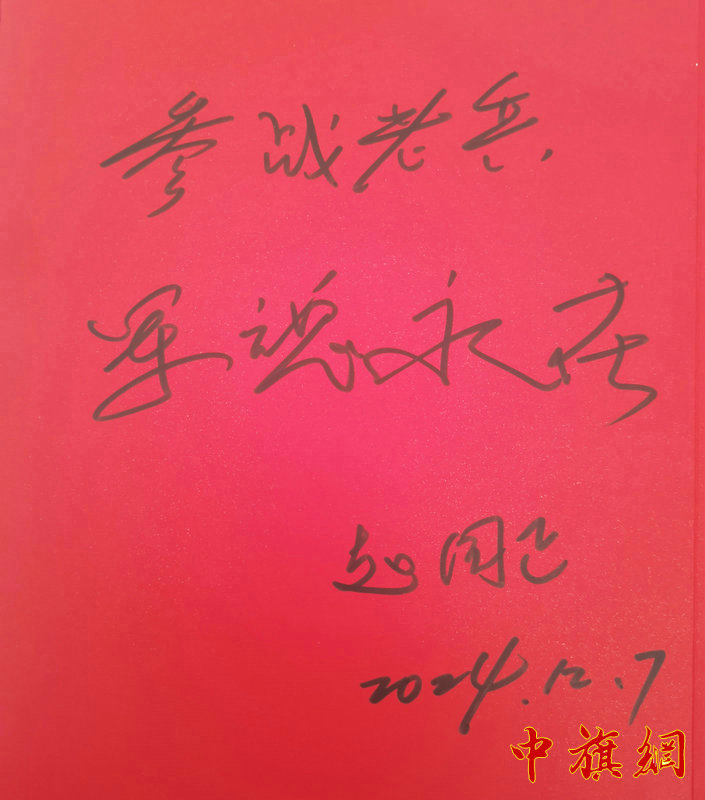 参战老兵
军魂永在
赵国
2024.12.7
中旗網